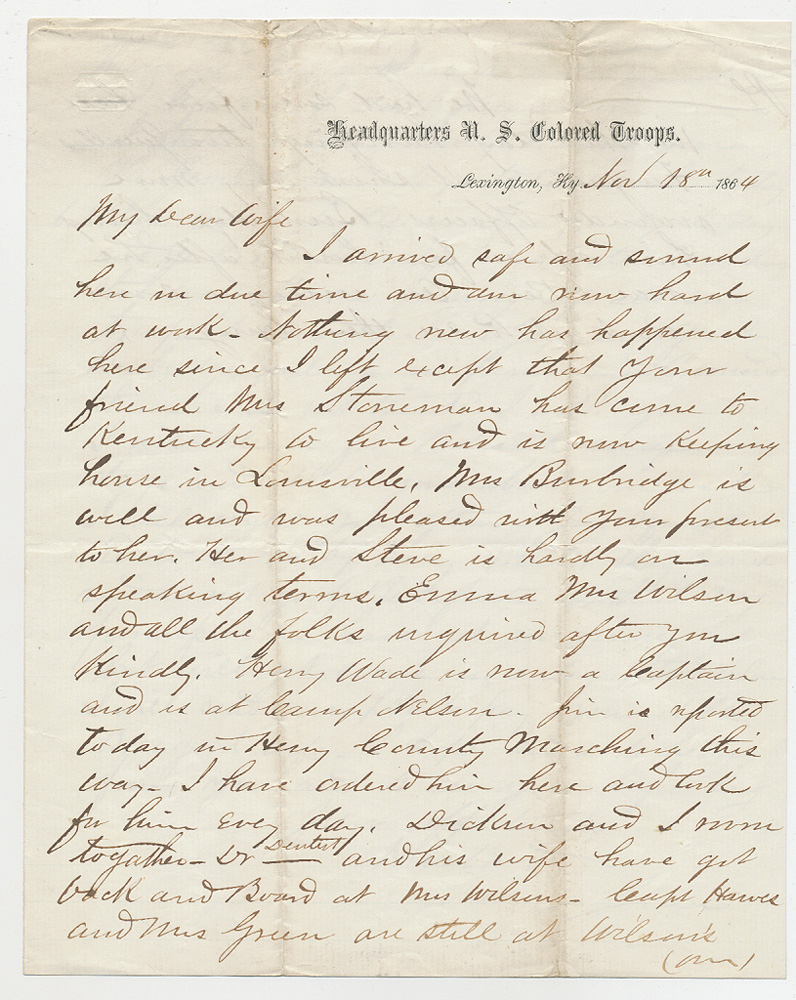 Headquarters U. S. Colored Troops.
Lexington, Ky. Nov 18th 1864
My Dear Wife
I arrived safe and sound
here in due time and am now hard
at work - Nothing new has happened
here since I left except that your
friend Mrs Stoneman has come to
Kentucky to live and is now Keeping
house in Louisville, Mrs Burbridge is
well and was pleased with your present
to her. Her and Steve is hardly on
speaking terms. Emma Mrs Wilson
and all the folks inquired after you
Kindly. Henry Wade is now a Captain
and is at Camp Nelson. Jim is reported
today in Henry County Marching this
way - I have ordered him here and look
for him every day. Dickson and I room
togather - Dr Dentist and his wife have got
back and Board at Mrs Wilsons - Capt Hawes
and Mrs Green are still at Wilson's
(over)